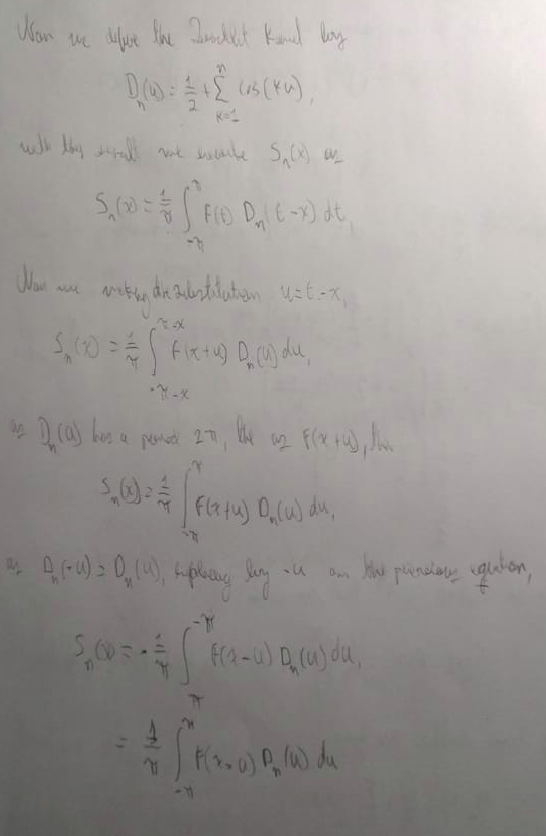 Now we define the Kernel by
D_n(u) = 1/2 + Σ_{k=1}^{n} cos(ku),
with this we S_n(x) as
S_n(x) = 1/π ∫_{-π}^{π} F(t) D_n(t-x) dt,
Now we making the substitution u=t-x,
S_n(x) = 1/π ∫_{-π-x}^{π-x} F(x+u) D_n(u) du,
as D_n(u) has a period 2π, as F(x+u),
S_n(x) = 1/π ∫_{-π}^{π} F(x+u) D_n(u) du,
as D_n(-u) = D_n(u), replacing by -u the previous equation,
S_n(x) = -1/π ∫_{π}^{-π} F(x-u) D_n(u) du,
= 1/π ∫_{-π}^{π} F(x-u) D_n(u) du